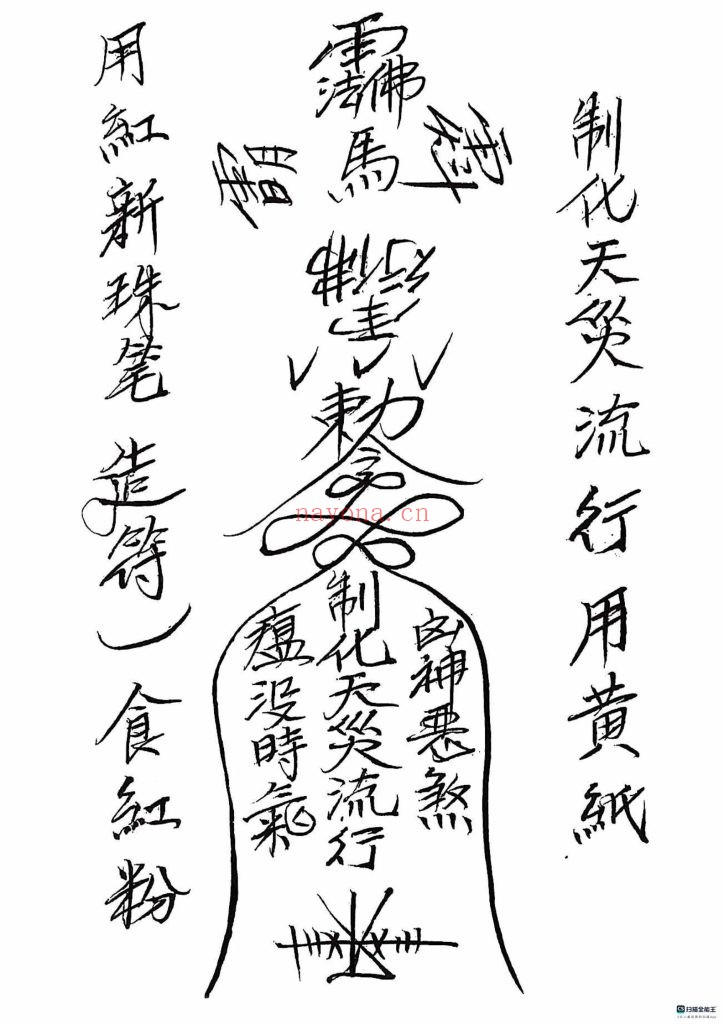 制化天災流行用黄紙
佛法
馬
勅令
凶神悪煞
制化天災流行
瘟没時氣
用紅新珠笔造符）食紅粉
nayona.cn
扫描全能王